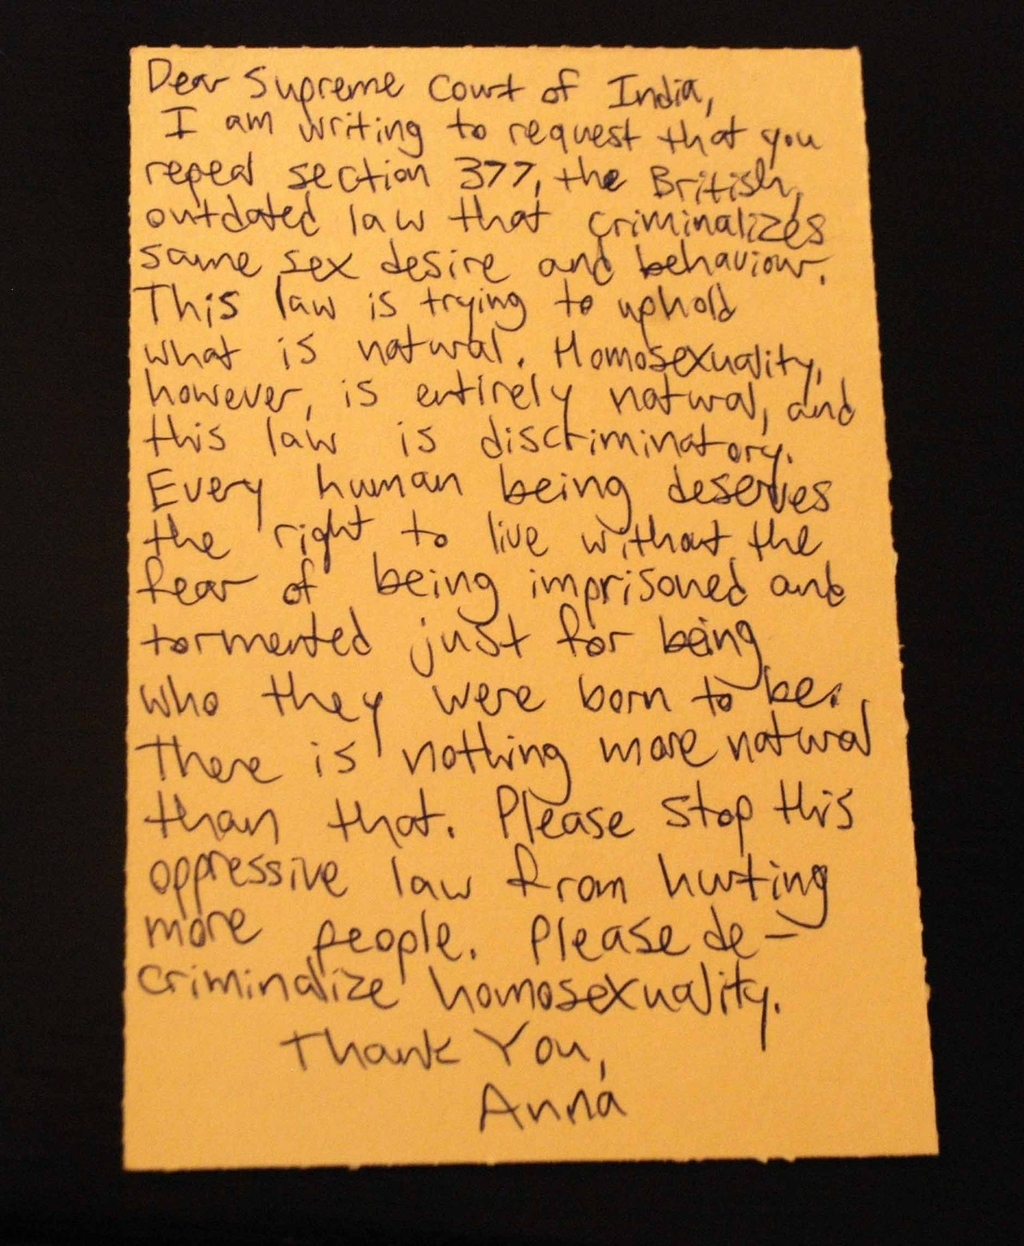 Dear Supreme Court of India,
I am writing to request that you
repeal section 377, the British,
outdated law that criminalizes
same sex desire and behaviour.
This law is trying to uphold
what is natural. Homosexuality,
however, is entirely natural, and
this law is discriminatory.
Every human being deserves
the right to live without the
fear of being imprisoned and
tormented just for being
who they were born to be.
There is nothing more natural
than that. Please stop this
oppressive law from hurting
more people. Please de-
criminalize homosexuality.
Thank You,
Anna